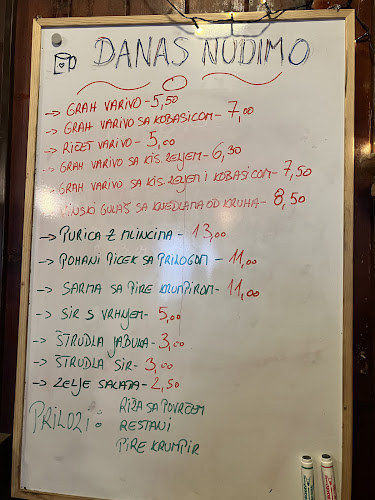 DANAS NUDIMO
→ GRAH VARIVO - 5,50
→ GRAH VARIVO SA KOBASICOM - 7,00
→ RIČET VARIVO - 5,00
→ GRAH VARIVO SA KIS. ZELJEM - 6,30
→ GRAH VARIVO SA KIS. ZELJEM I KOBASICOM - 7,50
GULAŠ SA KNEDLAMA OD KRUHA - 8,50
→ PURICA Z MLINCIMA - 13,00
→ POHANI PICEK SA PRILOGOM - 11,00
→ SARMA SA PIRE KRUMPIROM - 11,00
→ SIR S VRHNJEM - 5,00
→ ŠTRUDLA JABUKA - 3,00
→ ŠTRUDLA SIR - 3,00
→ ZELJE SALATA - 2,50
PRILOZI: RIŽA SA POVRĆEM
RESTANI
PIRE KRUMPIR